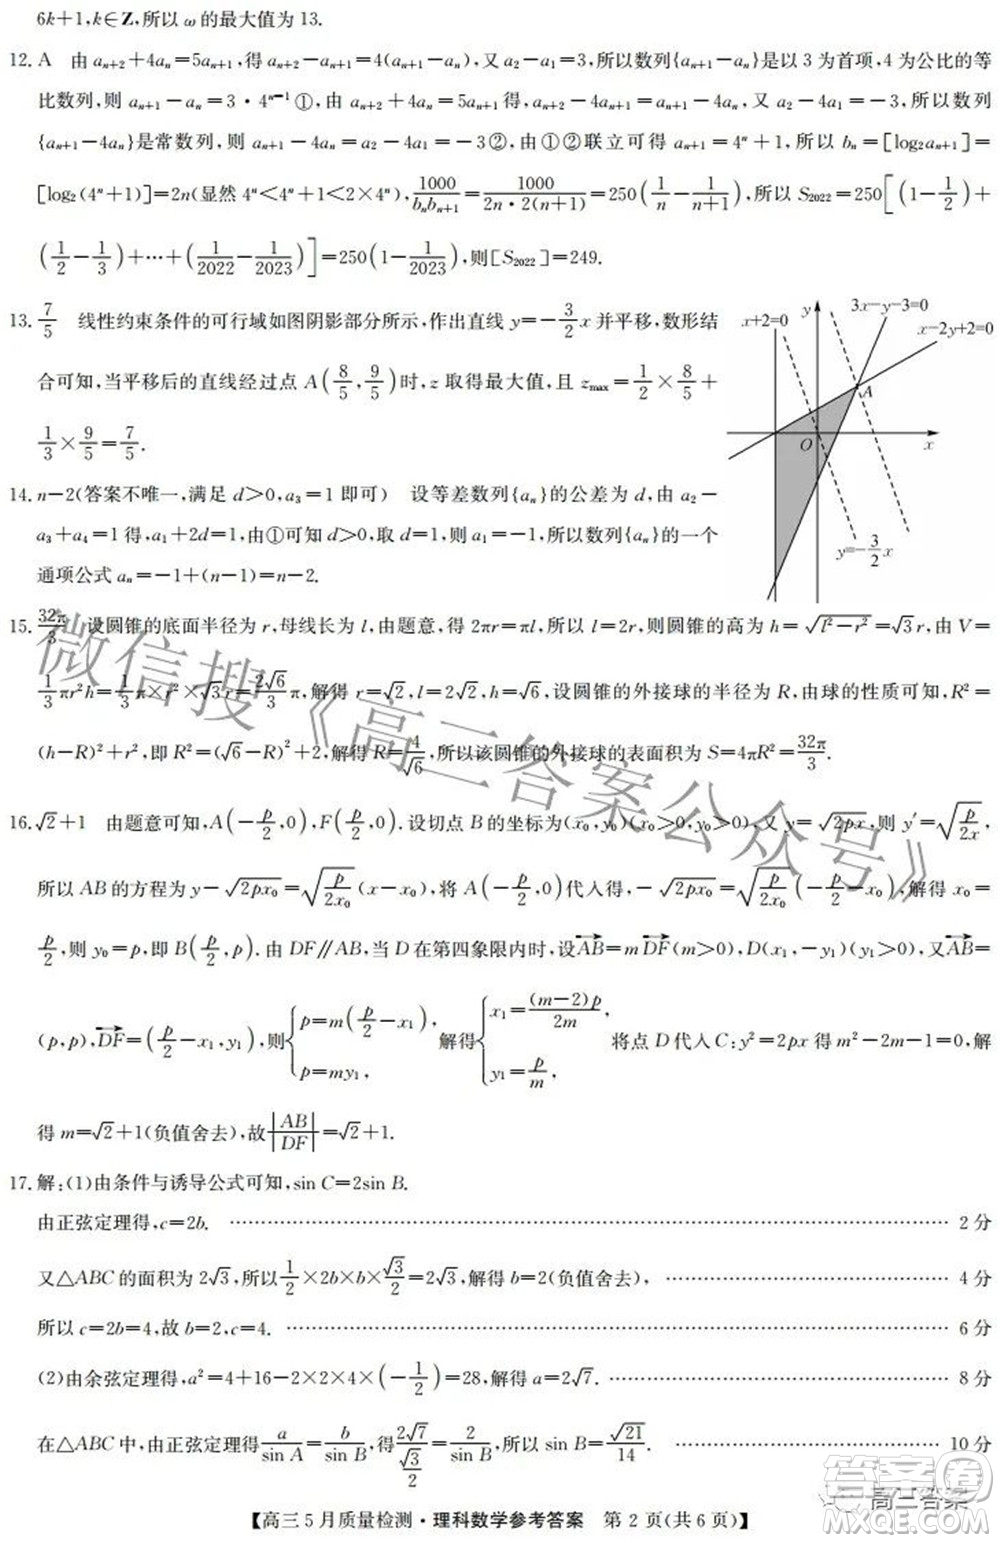 6k+1,k∈Z,所以 ω 的最大值为 13.
12. A 由 aₙ₊₂+4aₙ=5aₙ₊₁,得 aₙ₊₂−aₙ₊₁=4(aₙ₊₁−aₙ),又 a₂−a₁=3,所以数列{aₙ₊₁−aₙ}是以 3 为首项,4 为公比的等
比数列,则 aₙ₊₁−aₙ=3·4ⁿ⁻¹①,由 aₙ₊₂+4aₙ=5aₙ₊₁得,aₙ₊₂−4aₙ₊₁=aₙ₊₁−4aₙ,又 a₂−4a₁=−3,所以数列
{aₙ₊₁−4aₙ}是常数列,则 aₙ₊₁−4aₙ=a₂−4a₁=−3②,由①②联立可得 aₙ₊₁=4ⁿ+1,所以 bₙ=[log₂aₙ₊₁]=
[log₂(4ⁿ+1)]=2n(显然 4ⁿ<4ⁿ+1<2×4ⁿ),1000/(bₙbₙ₊₁)=1000/(2n·2(n+1))=250(1/n−1/(n+1)),所以 S₂₀₂₂=250[(1−1/2)+
(1/2−1/3)+…+(1/2022−1/2023)]=250(1−1/2023),则[S₂₀₂₂]=249.
13. 7/5 线性约束条件的可行域如图阴影部分所示,作出直线 y=−3/2x 并平移,数形结
合可知,当平移后的直线经过点 A(8/5,9/5)时,z 取得最大值,且 zmax=1/2×8/5+
1/3×9/5=7/5.
x+2=0
y
3x−y−3=0
x−2y+2=0
A
O
x
y=−3/2x
14. n−2(答案不唯一,满足 d>0,a₃=1 即可) 设等差数列{aₙ}的公差为 d,由 a₂−
a₃+a₄=1 得,a₁+2d=1,由①可知 d>0,取 d=1,则 a₁=−1,所以数列{aₙ}的一个
通项公式 aₙ=−1+(n−1)=n−2.
15. 32π/3 设圆锥的底面半径为 r,母线长为 l,由题意,得 2πr=πl,所以 l=2r,则圆锥的高为 h=√(l²−r²)=√3r,由 V=
1/3πr²h=1/3π×r²×√3r=2√6/3π,解得 r=√2,l=2√2,h=√6,设圆锥的外接球的半径为 R,由球的性质可知,R²=
(h−R)²+r²,即 R²=(√6−R)²+2,解得 R=4/√6,所以该圆锥的外接球的表面积为 S=4πR²=32π/3.
16. √2+1 由题意可知,A(−p/2,0),F(p/2,0).设切点 B 的坐标为(x₀,y₀)(x₀>0,y₀>0),又 y=√(2px),则 y′=√(p/2x),
所以 AB 的方程为 y−√(2px₀)=√(p/2x₀)(x−x₀),将 A(−p/2,0)代入得,−√(2px₀)=√(p/2x₀)(−p/2−x₀),解得 x₀=
p/2,则 y₀=p,即 B(p/2,p).由 DF∥AB,当 D 在第四象限内时,设AB→=mDF→(m>0),D(x₁,−y₁)(y₁>0),又AB→=
(p,p),DF→=(p/2−x₁,y₁),则{p=m(p/2−x₁), p=my₁, 解得{x₁=(m−2)p/2m, y₁=p/m, 将点 D 代入 C:y²=2px 得 m²−2m−1=0,解
得 m=√2+1(负值舍去),故|AB|/|DF|=√2+1.
17. 解:(1)由条件与诱导公式可知,sin C=2sin B.
由正弦定理得,c=2b. …… 2 分
又△ABC 的面积为 2√3,所以1/2×2b×b×√3/2=2√3,解得 b=2(负值舍去), …… 4 分
所以 c=2b=4,故 b=2,c=4. …… 6 分
(2)由余弦定理得,a²=4+16−2×2×4×(−1/2)=28,解得 a=2√7. …… 8 分
在△ABC 中,由正弦定理得a/sin A=b/sin B,得2√7/(√3/2)=2/sin B,所以 sin B=√21/14. …… 10 分
【高三5月质量检测·理科数学参考答案 第 2 页(共 6 页)】
微信搜《高三答案公众号》
高三答案
答案圈
MXQE.COM